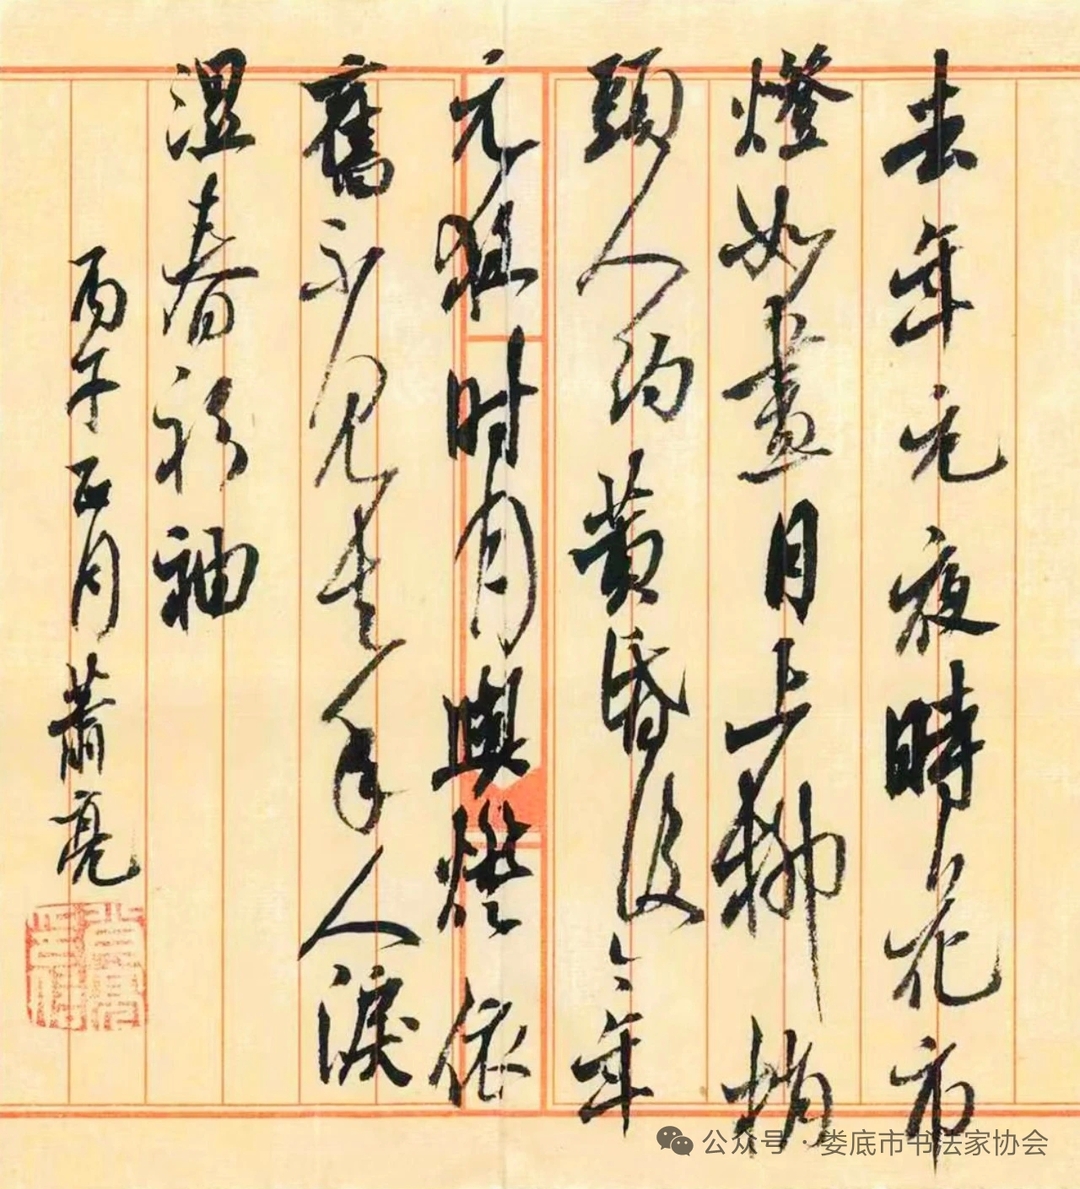 去年元夜時花市
燈如晝月上柳梢
頭人約黄昏後今年
元夜时月與燈依
舊不見去年人淚
湿春衫袖
丙午正月蕭亮
公众号·娄底市书法家协会